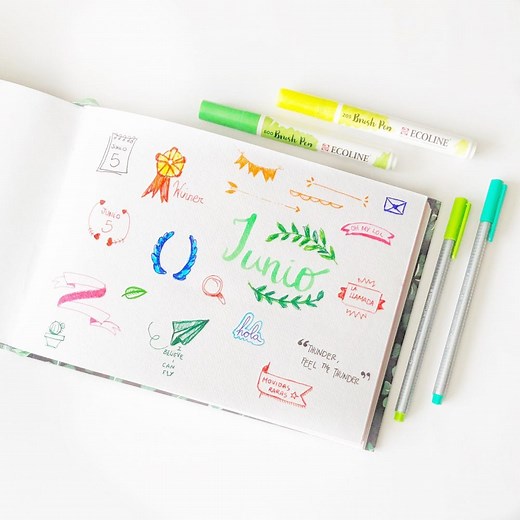 JUNIO
5
Winner
JUNIO
5
Junio
OH MY LOL
LA
LLAMADA
hola
I
BELIEVE
I
CAN
FLY
MOVIDAS
RARAS
“THUNDER,
FEEL THE THUNDER”
600 Brush Pen ECOLINE
Brush Pen ECOLINE